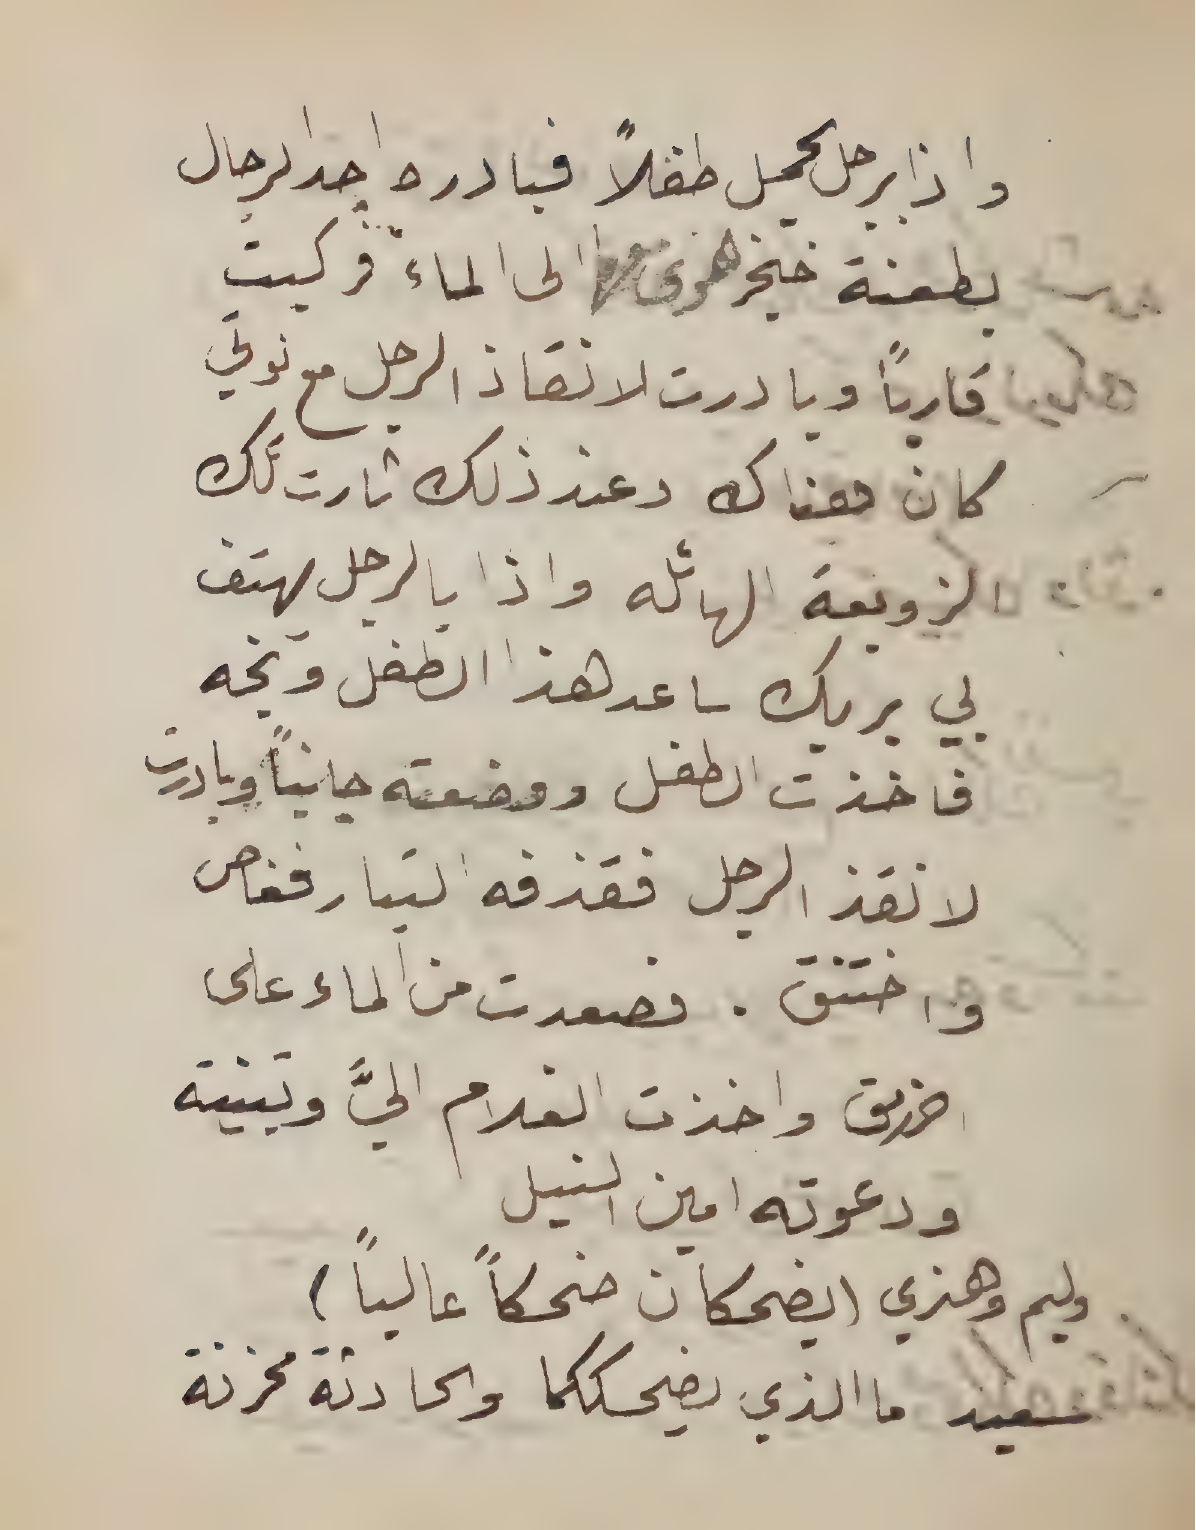 واذا برجل يحمل طفلاً فبادره احد الرجال
بطعنة خنجر هوى الى الماء فركبت
قارباً وبادرت لانقاذ الرجل مع نوتي
كان هناك وعند ذلك ثارت تلك
الزوبعة الهائله واذا بالرجل يهتف
بي بربك ساعد هذا الطفل ونجه
فاخذت الطفل ووضعته جانباً وبادرت
لانقذ الرجل فقذفه التيار فغاص
واختنق . فصعدت من الماء على
واخذت الغلام اليَّ وتبنيته
ودعوته امين النيل
وليم وهنري (يضحكان ضحكاً عالياً)
سعيد ما الذي يضحككما والحادثة محزنة